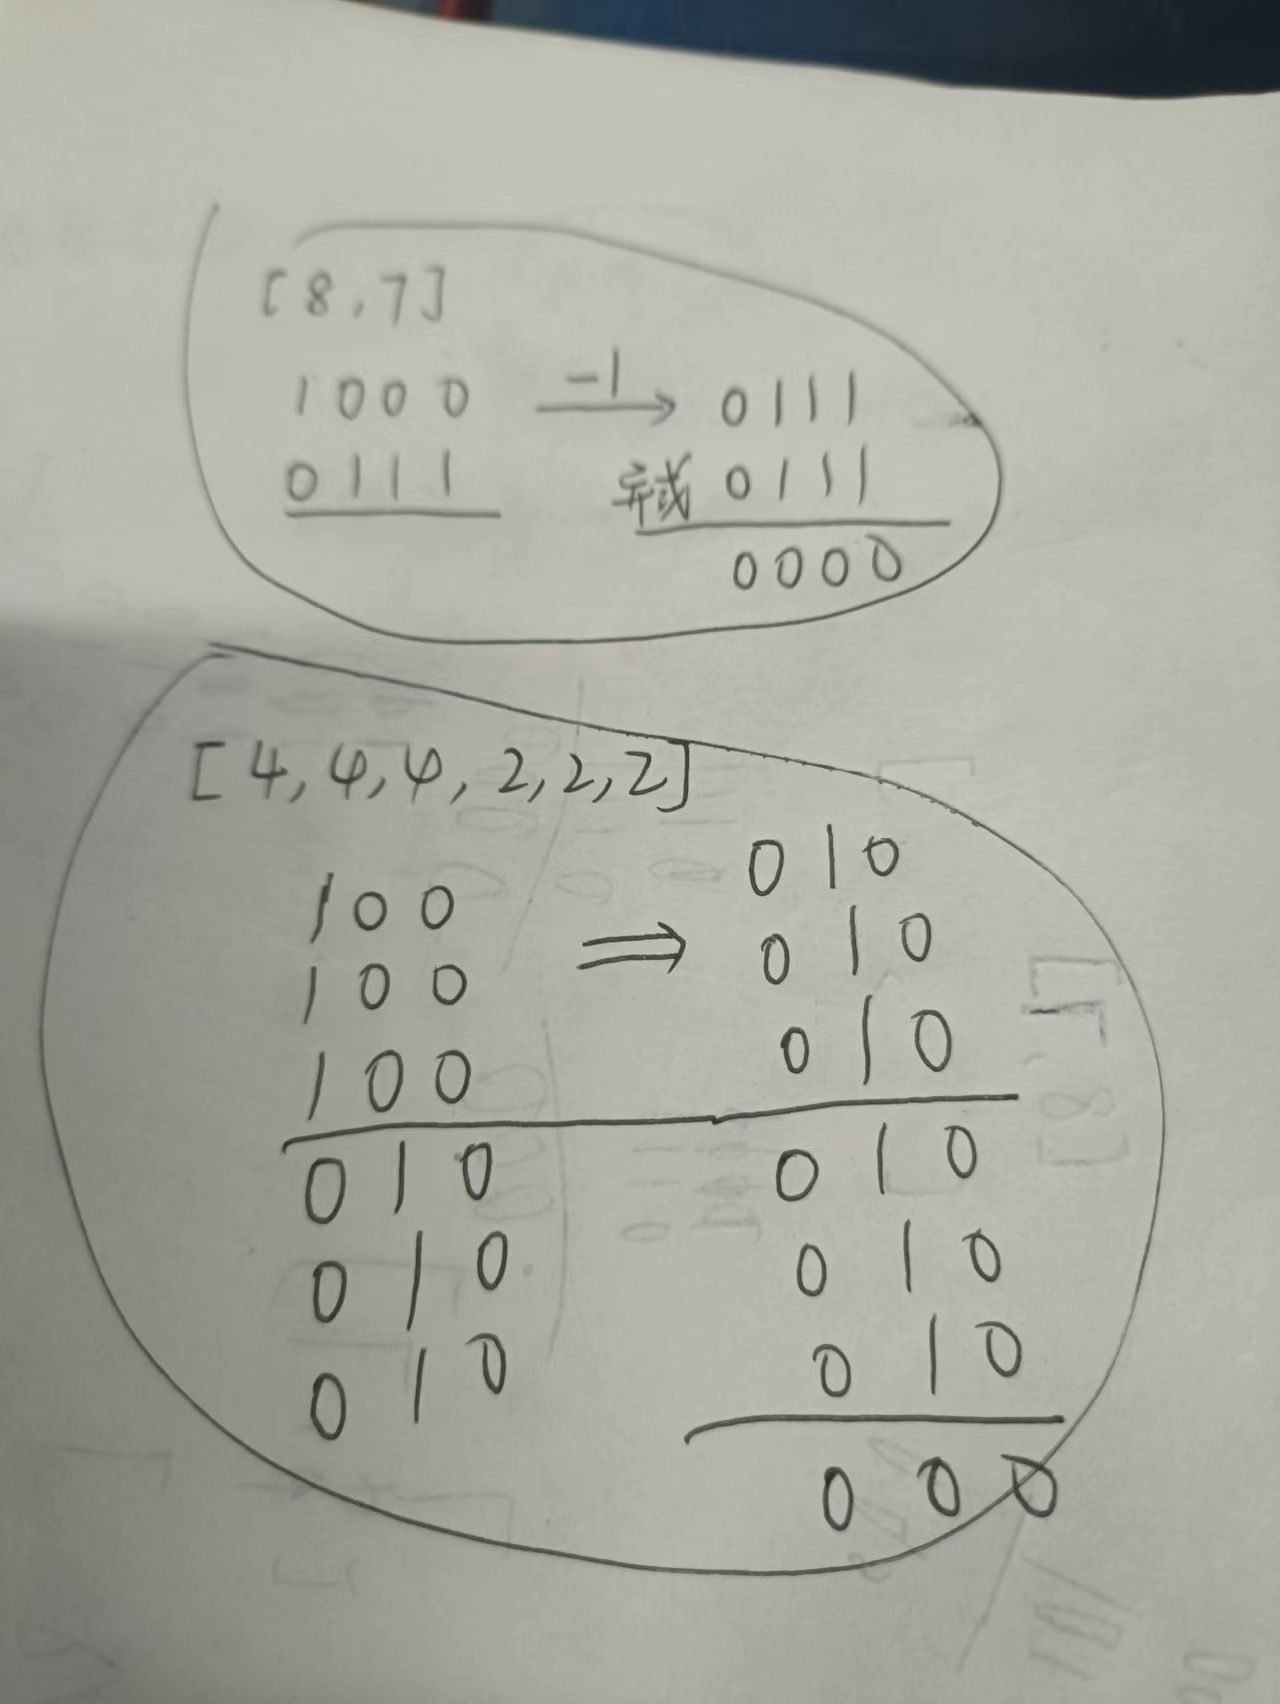 [8,7]
1000 -1→ 0111
0111 异或 0111
0000
[4,4,4,2,2,2]
100 ⇒ 010
100 010
100 010
010 010
010 010
010 010
000